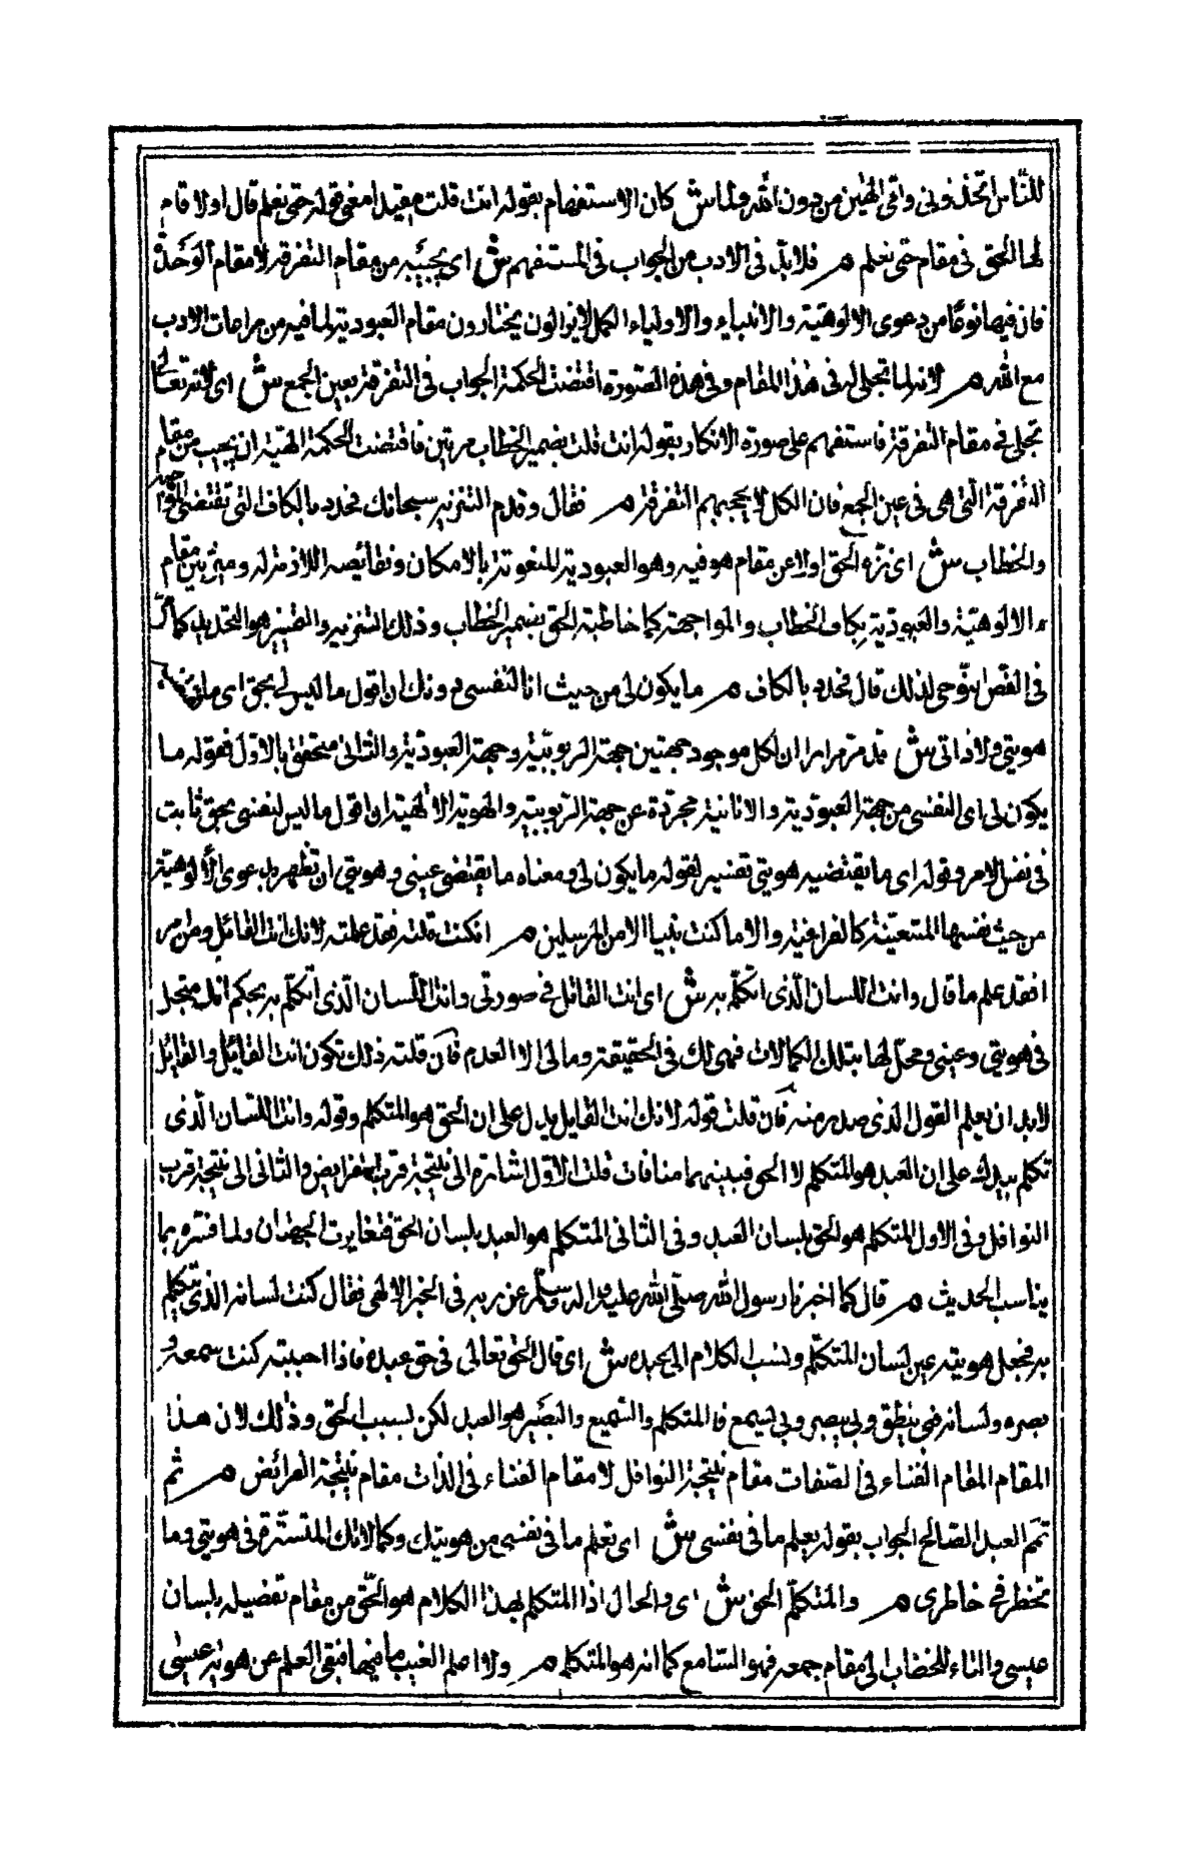 للنّاس اتخذونى وامّى الهين من دون الله ولما ش كان الاستفهام بقوله انت قلت مقيدا معنى قوله حتى نعلم قال اولا قام
لها الحق فى مقام حتى نعلم م فلابدّ فى الادب من الجواب فى المستفهم ش اى يجيبه من مقام التفرقة لا مقام الوحدة
فان فيها نوعًا من دعوى الالوهيّة والانبياء والاولياء الكمل لا يزالون يختارون مقام العبودية لما فيه من مراعات الادب
مع الله م لانه لما تجلى له فى هذا المقام وفى هذه الصّورة اقتضت الحكمة الجواب فى التفرقة بعين الجمع ش اى لانه تعالى
تجلى فى مقام التفرقة فاستفهم على صورة الانكار بقوله انت قلت بضمير الخطاب مرتين فاقتضت الحكمة الهيّة ان يجيب من مقام
التفرقة التى هى فى عين الجمع فان الكل لا يحجبهم التفرقة م فقال وقدم التنزيه سبحانك فحدد بالكاف التى تقتضى المواجهة
والخطاب ش اى نزّه الحق اولا عن مقام هو فيه وهو العبودية المنعوتة بالامكان ونقائصه اللازمة له وميز بين مقام
الالوهيّة والعبوديّة بكاف الخطاب والمواجهة كما خاطبه الحق بضمير الخطاب وذلك التنزيه والتميز هو التحديد كما مرّ
فى الفصّ النوحى لذلك قال فحدد بالكاف م ما يكون لى من حيث انا لنفسى دونك ان اقول ما ليس لى بحق اى ما
هويتى ولا ذاتى ش قد مرّ مرارا ان لكل موجود جهتين جهة الربوبيّة وجهة العبوديّة والثانى متحقق بالاوّل فقوله ما
يكون لى اى لنفسى من جهة العبوديّة والانانية مجردة عن جهة الربوبية والهوية الالهية ان اقول ما ليس لنفسى بحق ثابت
فى نفس الامر وقوله اى ما يقتضيه هويتى تفسير لقوله ما يكون لى ومعناه ما يقتضى عينى وهويتى ان تظهر بدعوى الالوهيّة
من حيث نفسها المتعيّنة كالفراعنة والا ما كنت نبيا الا من المرسلين م ان كنت قلته فقد علمته لانك انت القائل ومن
فقد علم ما قال وانت اللسان الّذى اتكلّم به ش اى انت القائل فى صورتى وانت اللّسان الّذى اتكلّم به بحكم انك متجل
فى هويتى وعينى ومحل لها بتلك الكمالات فهى لك فى الحقيقة وما لى الا العدم فان قلته ذلك تكون انت القائل والقايل
لابد ان يعلم القول الذى صدر منه فان قلت قوله لانك انت القايل يدل على ان الحق هو المتكلم وقوله وانت اللسان الّذى
تكلم به يدل على ان العبد هو المتكلم لا الحق فبينهما منافات قلت الاوّل اشارة الى نتيجة قرب الفرايض والثانى الى نتيجة قرب
النوافل وفى الاول المتكلم هو الحق بلسان العبد وفى الثانى المتكلم هو العبد بلسان الحق فتغايرت الجهتان ولما فسّره بما
يناسب الحديث م قال كما اخبرنا رسول الله صلّى الله عليه واله وسلّم عن ربه فى الخبر الالهى فقال كنت لسانه الذى يتكلم
به فجعل هويته عين لسان المتكلّم ونسب الكلام الى عبده ش اى قال الحق تعالى فى حق عبده فاذا احببته كنت سمعه و
بصره ولسانه فبى ينطق وبى يبصر وبى يسمع فالمتكلم والسّميع والبصير هو العبد لكن بسبب الحق وذلك لان هذا
المقام المقام الفناء فى الصّفات مقام نتيجة النوافل لا مقام الفناء فى الذات مقام نتيجة الفرائض م ثم
تمّم العبد الصّالح الجواب بقوله يعلم ما فى نفسى ش اى تعلم ما فى نفسى من هويتك وكمالاتك المتسترة فى هويتى وما
تخطر فى خاطرى م والمتكلّم الحق ش اى والحال اذا المتكلم بهذا الكلام هو الحّق من مقام تفصيله بلسان
عيسى والتاء للخطاب الى مقام جمعه فهو السّامع كما انه هو المتكلم م ولا اعلم الغيب ما فيها فنفى العلم عن هوية عيسى